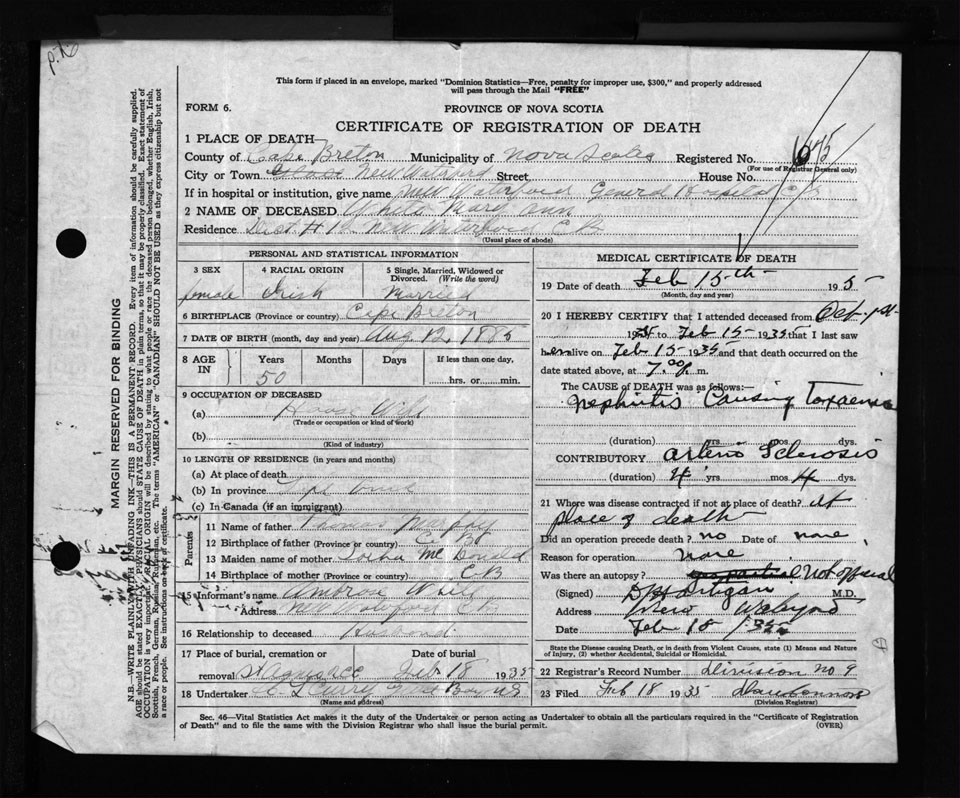 This form if placed in an envelope, marked "Dominion Statistics—Free, penalty for improper use, $300," and properly addressed
will pass through the Mail "FREE"
FORM 6.
PROVINCE OF NOVA SCOTIA
CERTIFICATE OF REGISTRATION OF DEATH
1 PLACE OF DEATH
County of Cape Breton Municipality of Nova Scotia Registered No.
(For use of Registrar General only)
City or Town New Waterford Street, House No.
If in hospital or institution, give name New Waterford General Hospital C B
2 NAME OF DECEASED White Mary Ann
Residence Dist # 12 New Waterford C B
(Usual place of abode)
PERSONAL AND STATISTICAL INFORMATION
3 SEX 4 RACIAL ORIGIN 5 Single, Married, Widowed or
Divorced. (Write the word)
female Irish Married
6 BIRTHPLACE (Province or country) Cape Breton
7 DATE OF BIRTH (month, day and year) Aug 12, 1885
8 AGE IN Years Months Days If less than one day,
50 hrs. or min.
9 OCCUPATION OF DECEASED
(a) House Wife
(Trade or occupation or kind of work)
(b)
(Kind of industry)
10 LENGTH OF RESIDENCE (in years and months)
(a) At place of death
(b) In province Life time
(c) In Canada (if an immigrant)
Parents
11 Name of father
12 Birthplace of father (Province or country) C B
13 Maiden name of mother McDonald
14 Birthplace of mother (Province or country) C B
15 Informant's name Ambrose White
Address New Waterford C B
16 Relationship to deceased Husband
17 Place of burial, cremation or Date of burial
removal St Agnes Feb 18 1935
18 Undertaker Curry
(Name and address)
MEDICAL CERTIFICATE OF DEATH
19 Date of death Feb 15th 1935
(Month, day and year)
20 I HEREBY CERTIFY that I attended deceased from Oct. 1st
1934 to Feb 15 1935 that I last saw
her alive on Feb 15 1935 and that death occurred on the
date stated above, at 7.00 p. m.
The CAUSE of DEATH was as follows:—
Nephritis Causing Toxaemia
(duration) yrs. mos. dys.
CONTRIBUTORY Arterio Sclerosis
(duration) yrs. mos. 4 dys.
21 Where was disease contracted if not at place of death? at
place of death
Did an operation precede death? no Date of none
Reason for operation none
Was there an autopsy? Not official
(Signed) D Hartigan M.D.
Address New Waterford
Date Feb 18 1935
State the Disease causing Death, or in death from Violent Causes, state (1) Means and Nature
of Injury, (2) whether Accidental, Suicidal or Homicidal.
22 Registrar's Record Number Division No 9
23 Filed Feb 18 1935
(Division Registrar)
Sec. 46—Vital Statistics Act makes it the duty of the Undertaker or person acting as Undertaker to obtain all the particulars required in the "Certificate of Registration
of Death" and to file the same with the Division Registrar who shall issue the burial permit.
(OVER)
MARGIN RESERVED FOR BINDING
N.B.—WRITE PLAINLY WITH UNFADING INK—THIS IS A PERMANENT RECORD. Every item of information should be carefully supplied.
AGE should be stated EXACTLY. PHYSICIANS should STATE CAUSE OF DEATH in plain terms, so that it may be properly classified. Exact statement of
OCCUPATION is very important. RACIAL ORIGIN will be described by stating to what people or race the deceased person belonged, whether English, Irish,
Scottish, French, German, Russian, Ruthenian, etc. The terms "AMERICAN" or "CANADIAN" SHOULD NOT BE USED as they express citizenship but not
a race or people. See instructions on back of certificate.